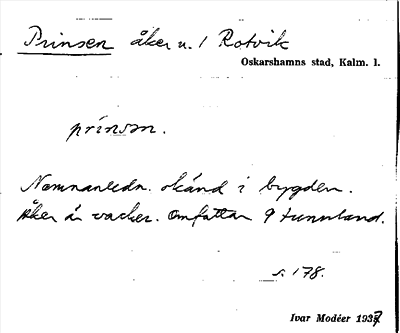 Prinsen åker u. / Rotvik
Oskarshamns stad, Kalm. l.
prinsən.
Namnanledn. okänd i bygden.
Åker är vacker. Omfattar 9 tunnland.
s. 178.
Ivar Modéer 1937